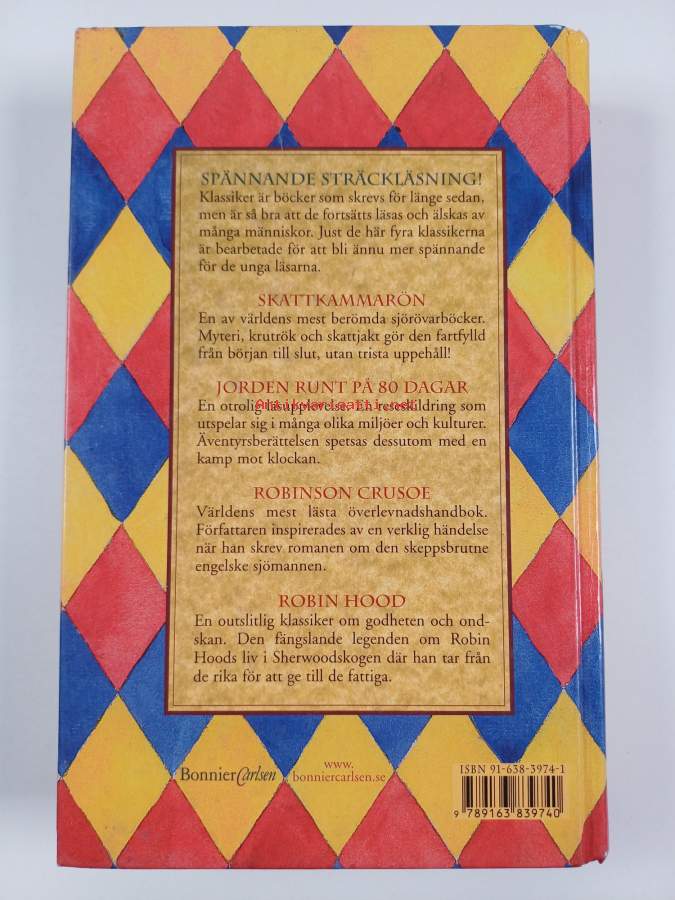 SPÄNNANDE STRÄCKLÄSNING!
Klassiker är böcker som skrevs för länge sedan,
men är så bra att de fortsätts läsas och älskas av
många människor. Just de här fyra klassikerna
är bearbetade för att bli ännu mer spännande
för de unga läsarna.
SKATTKAMMARÖN
En av världens mest berömda sjörövarböcker.
Myteri, krutrök och skattjakt gör den fartfylld
från början till slut, utan trista uppehåll!
JORDEN RUNT PÅ 80 DAGAR
En otrolig läsupplevelse. En reseskildring som
utspelar sig i många olika miljöer och kulturer.
Äventyrsberättelsen spetsas dessutom med en
kamp mot klockan.
ROBINSON CRUSOE
Världens mest lästa överlevnadshandbok.
Författaren inspirerades av en verklig händelse
när han skrev romanen om den skeppsbrutne
engelske sjömannen.
ROBIN HOOD
En outslitlig klassiker om godheten och ond-
skan. Den fängslande legenden om Robin
Hoods liv i Sherwoodskogen där han tar från
de rika för att ge till de fattiga.
BonnierCarlsen
www.
bonniercarlsen.se
ISBN 91-638-3974-1
9 789163 839740